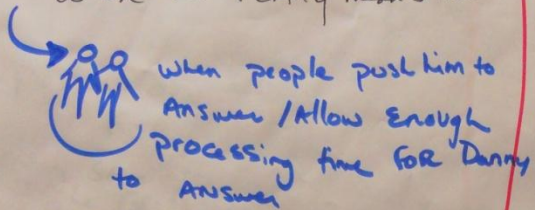 when people push him to
Answer / Allow Enough
processing time FOR Danny
to Answer